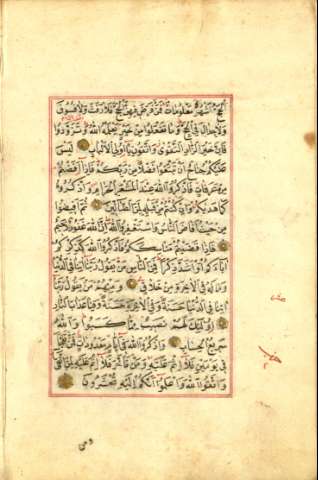 الحج اشهر معلومات فمن فرض فيهن الحج فلا رفث ولا فسوق
ولا جدال في الحج وما تفعلوا من خير يعلمه الله وتزودوا
فان خير الزاد التقوى واتقون يا اولي الالباب ليس
عليكم جناح ان تبتغوا فضلا من ربكم فاذا افضتم
من عرفات فاذكروا الله عند المشعر الحرام واذكروه
كما هديكم وان كنتم من قبله لمن الضالين ثم افيضوا
من حيث افاض الناس واستغفروا الله ان الله غفور رحيم
فاذا قضيتم مناسككم فاذكروا الله كذكركم
اباءكم او اشد ذكرا فمن الناس من يقول ربنا اتنا في الدنيا
وما له في الاخرة من خلاق ومنهم من يقول ربنا
اتنا في الدنيا حسنة وفي الاخرة حسنة وقنا عذاب النار
اولئك لهم نصيب مما كسبوا والله
سريع الحساب واذكروا الله في ايام معدودات فمن تعجل
في يومين فلا اثم عليه ومن تاخر فلا اثم عليه لمن اتقى
واتقوا الله واعلموا انكم اليه تحشرون
ومن